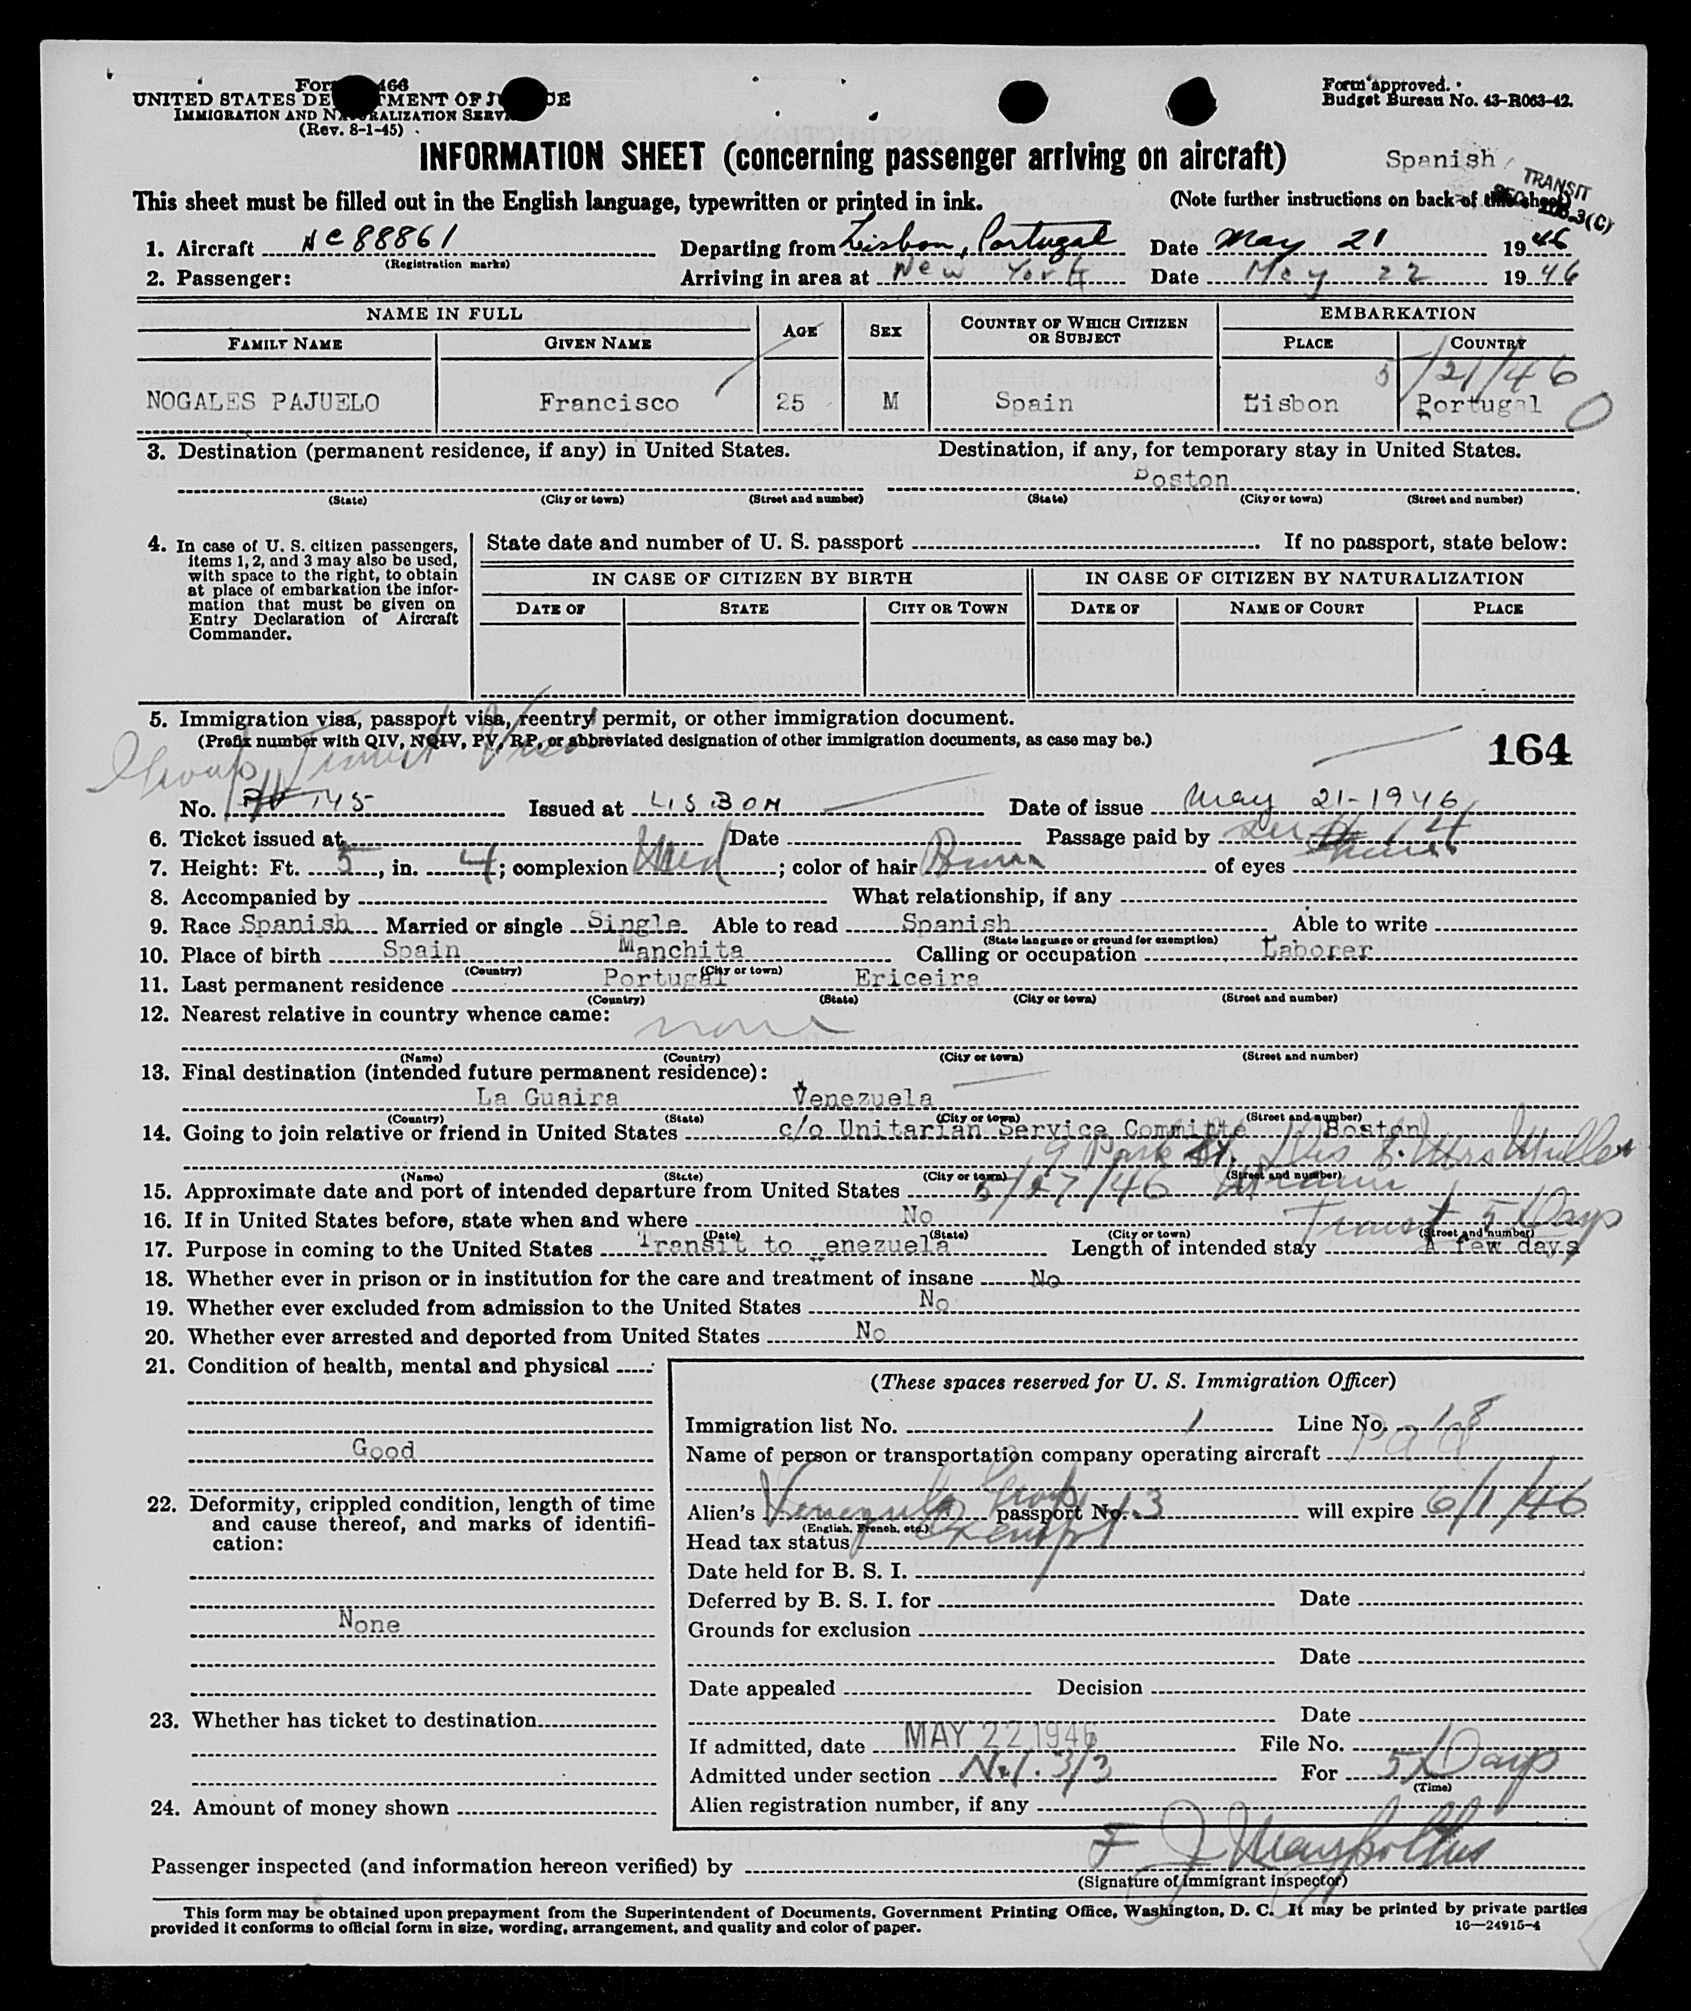 Form 466
UNITED STATES DEPARTMENT OF JUSTICE
IMMIGRATION AND NATURALIZATION SERVICE
(Rev. 8-1-45)
Form approved.
Budget Bureau No. 43-R063-42.
INFORMATION SHEET (concerning passenger arriving on aircraft)
Spanish
TRANSIT
This sheet must be filled out in the English language, typewritten or printed in ink.
(Note further instructions on back of this sheet)
3(C)
1. Aircraft NC 88861 Departing from Lisbon, Portugal Date May 21 1946
(Registration marks)
2. Passenger: Arriving in area at New York Date May 22 1946
NAME IN FULL
AGE SEX COUNTRY OF WHICH CITIZEN OR SUBJECT EMBARKATION
FAMILY NAME GIVEN NAME PLACE COUNTRY
5/21/46
NOGALES PAJUELO Francisco 25 M Spain Lisbon Portugal
3. Destination (permanent residence, if any) in United States. Destination, if any, for temporary stay in United States.
Boston
(State) (City or town) (Street and number) (State) (City or town) (Street and number)
4. In case of U. S. citizen passengers,
items 1, 2, and 3 may also be used,
with space to the right, to obtain
at place of embarkation the infor-
mation that must be given on
Entry Declaration of Aircraft
Commander.
State date and number of U. S. passport If no passport, state below:
IN CASE OF CITIZEN BY BIRTH IN CASE OF CITIZEN BY NATURALIZATION
DATE OF STATE CITY OR TOWN DATE OF NAME OF COURT PLACE
5. Immigration visa, passport visa, reentry permit, or other immigration document.
(Prefix number with QIV, NQIV, PV, RP, or abbreviated designation of other immigration documents, as case may be.)
164
Group Transit Visa
No. PV 145 Issued at LISBON Date of issue May 21-1946
6. Ticket issued at Date Passage paid by
7. Height: Ft. 5, in. 4; complexion Med; color of hair Brown of eyes
8. Accompanied by What relationship, if any
9. Race Spanish Married or single Single Able to read Spanish Able to write
(State language or ground for exemption)
10. Place of birth Spain Manchita Calling or occupation Laborer
(Country) (City or town)
11. Last permanent residence Portugal Ericeira
(Country) (State) (City or town) (Street and number)
12. Nearest relative in country whence came:
none
(Name) (Country) (City or town) (Street and number)
13. Final destination (intended future permanent residence):
La Guaira Venezuela
(Country) (State) (City or town) (Street and number)
14. Going to join relative or friend in United States c/o Unitarian Service Committe Boston
9 Park St. Mrs Muller
(Name) (State) (City or town) (Street and number)
15. Approximate date and port of intended departure from United States 5/27/46 Miami
16. If in United States before, state when and where No
Transit 5 Days
(Date) (State) (City or town) (Street and number)
17. Purpose in coming to the United States Transit to Venezuela Length of intended stay A few days
18. Whether ever in prison or in institution for the care and treatment of insane No
19. Whether ever excluded from admission to the United States No
20. Whether ever arrested and deported from United States No
21. Condition of health, mental and physical
Good
22. Deformity, crippled condition, length of time
and cause thereof, and marks of identifi-
cation:
None
23. Whether has ticket to destination
24. Amount of money shown
(These spaces reserved for U. S. Immigration Officer)
Immigration list No. 1 Line No. 18
Name of person or transportation company operating aircraft PAA
Alien's Venezuela Group passport No. 13 will expire 6/1/46
(English, French, etc.)
Head tax status Exempt
Date held for B. S. I.
Deferred by B. S. I. for Date
Grounds for exclusion
Date
Date appealed Decision
Date
If admitted, date MAY 22 1946 File No.
Admitted under section 3/3 For 5 Days
(Time)
Alien registration number, if any
Passenger inspected (and information hereon verified) by
(Signature of immigrant inspector)
This form may be obtained upon prepayment from the Superintendent of Documents, Government Printing Office, Washington, D. C. It may be printed by private parties
provided it conforms to official form in size, wording, arrangement, and quality and color of paper.
16—24915-4